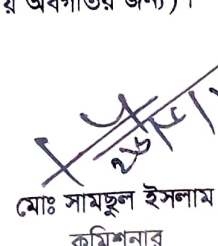 র অবগতির জন্য)।
মোঃ সামছুল ইসলাম
কমিশনার